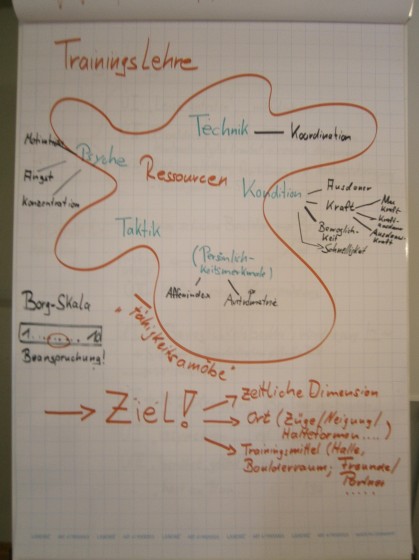 Trainingslehre
Technik — Koordination
Motivation
Psyche
Angst
Konzentration
Ressourcen
Kondition
Ausdauer
Kraft
Max
kraft
Kraft-
ausdauer
Ausdauer-
kraft
Beweglich-
keit
Schnelligkeit
Taktik
(Persönlich-
keitsmerkmale)
Affenindex
"Fähigkeitsamöbe"
Borg-Skala
1........10
Beanspruchung!
→ Ziel!
→ zeitliche Dimension
→ Ort (Züge/Neigung/
Halteformen....)
→ Trainingsmittel (Halle,
Boulderraum, Freunde/
Partner
.....